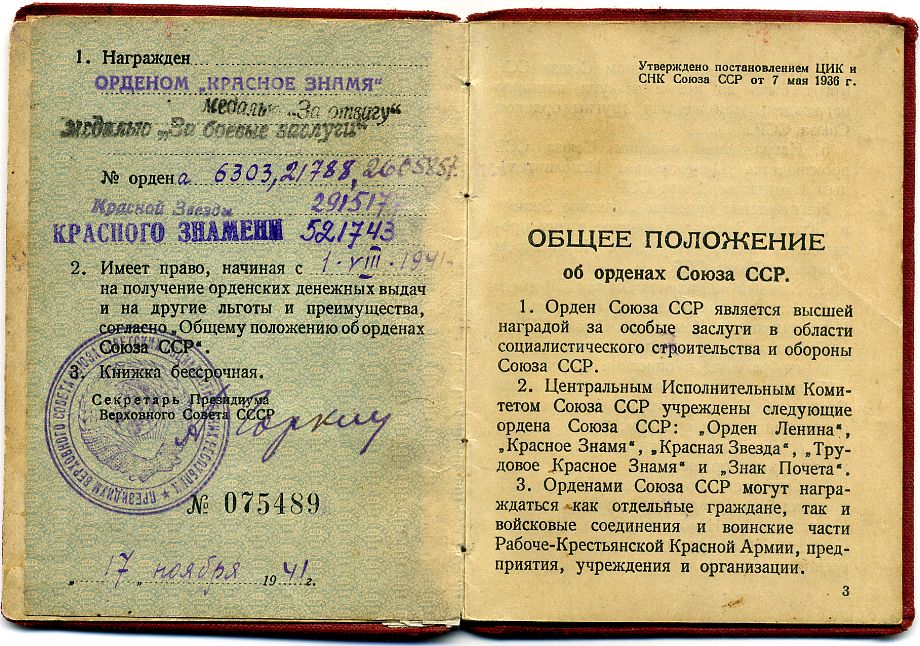 1. Награжден
ОРДЕНОМ „КРАСНОЕ ЗНАМЯ“
медалью „За отвагу“
медалью „За боевые заслуги“
№ ордена 6303, 21788, 2605857.
Красной Звезды 2915177
КРАСНОГО ЗНАМЕНИ 521743
2. Имеет право, начиная с 1·VIII·1941.
на получение орденских денежных выдач
и на другие льготы и преимущества,
согласно „Общему положению об орденах
Союза ССР“.
3. Книжка бессрочная.
Секретарь Президиума
Верховного Совета СССР
Горкин
№ 075489
„17 ноября 1941 г.
ПРЕЗИДИУМ ВЕРХОВНОГО СОВЕТА СОЮЗА СОВЕТСКИХ
Утверждено постановлением ЦИК и
СНК Союза ССР от 7 мая 1936 г.
ОБЩЕЕ ПОЛОЖЕНИЕ
об орденах Союза ССР.
1. Орден Союза ССР является высшей
наградой за особые заслуги в области
социалистического строительства и обороны
Союза ССР.
2. Центральным Исполнительным Коми-
тетом Союза ССР учреждены следующие
ордена Союза ССР: „Орден Ленина“,
„Красное Знамя“, „Красная Звезда“, „Тру-
довое Красное Знамя“ и „Знак Почета“.
3. Орденами Союза ССР могут награ-
ждаться как отдельные граждане, так и
войсковые соединения и воинские части
Рабоче-Крестьянской Красной Армии, пред-
приятия, учреждения и организации.
3